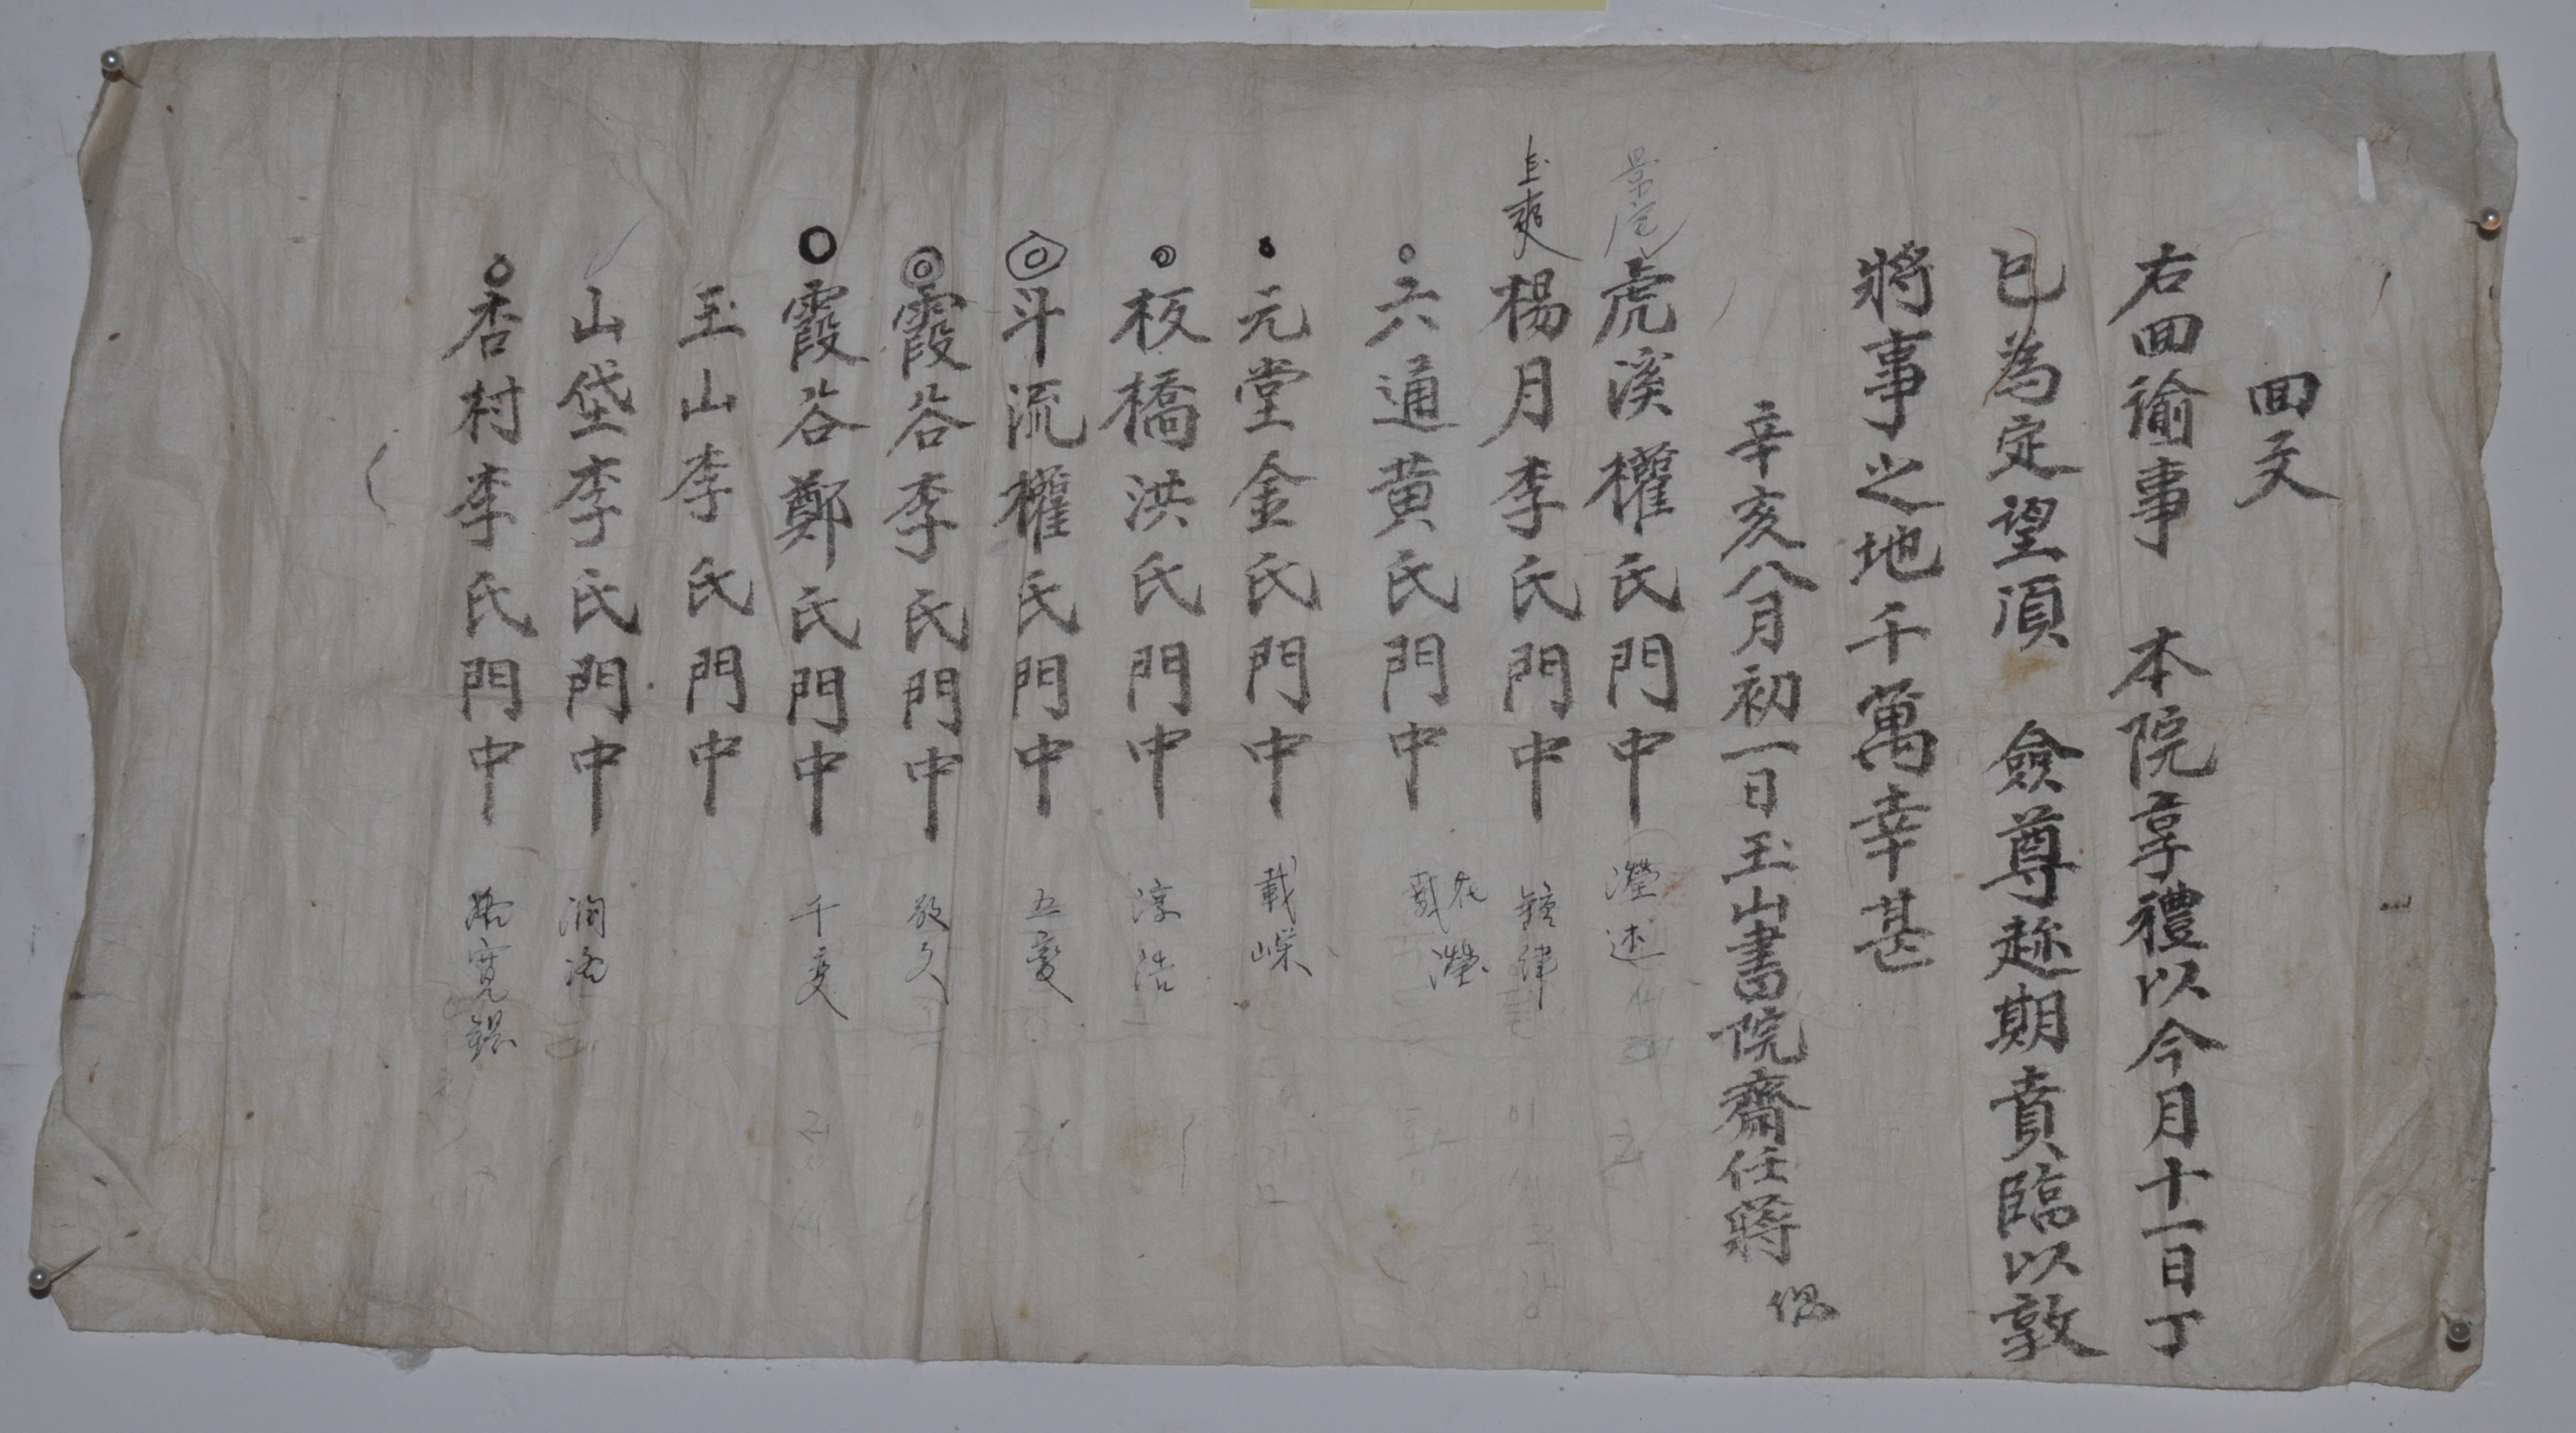 回文
右回喩事 本院享禮以今月十一日丁
已為定望湏 僉尊趂期賁臨以敦
將事之地千萬幸甚
辛亥八月初一日玉山書院齋任蔣
虎溪權氏門中
楊月李氏門中
六通黃氏門中
元堂金氏門中 載嶸
板橋洪氏門中 淳浩
斗流權氏門中 五夔
霞谷李氏門中 敬久
霞谷鄭氏門中 千夔
玉山李氏門中
山垈李氏門中
杏村李氏門中